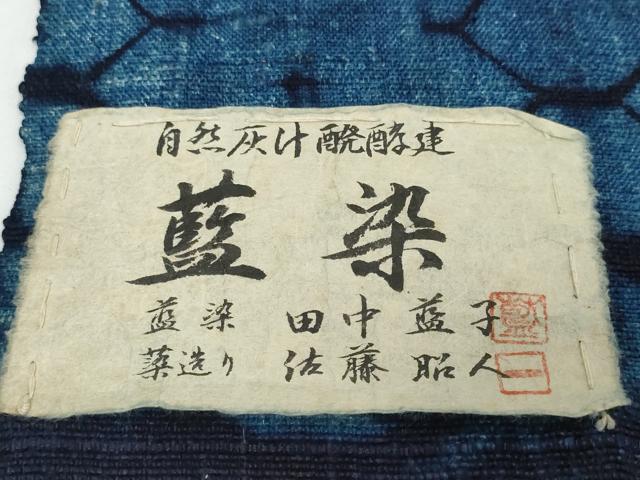 自然灰汁醗酵建
藍染
藍染 田中藍子
蒅造り 佐藤昭人